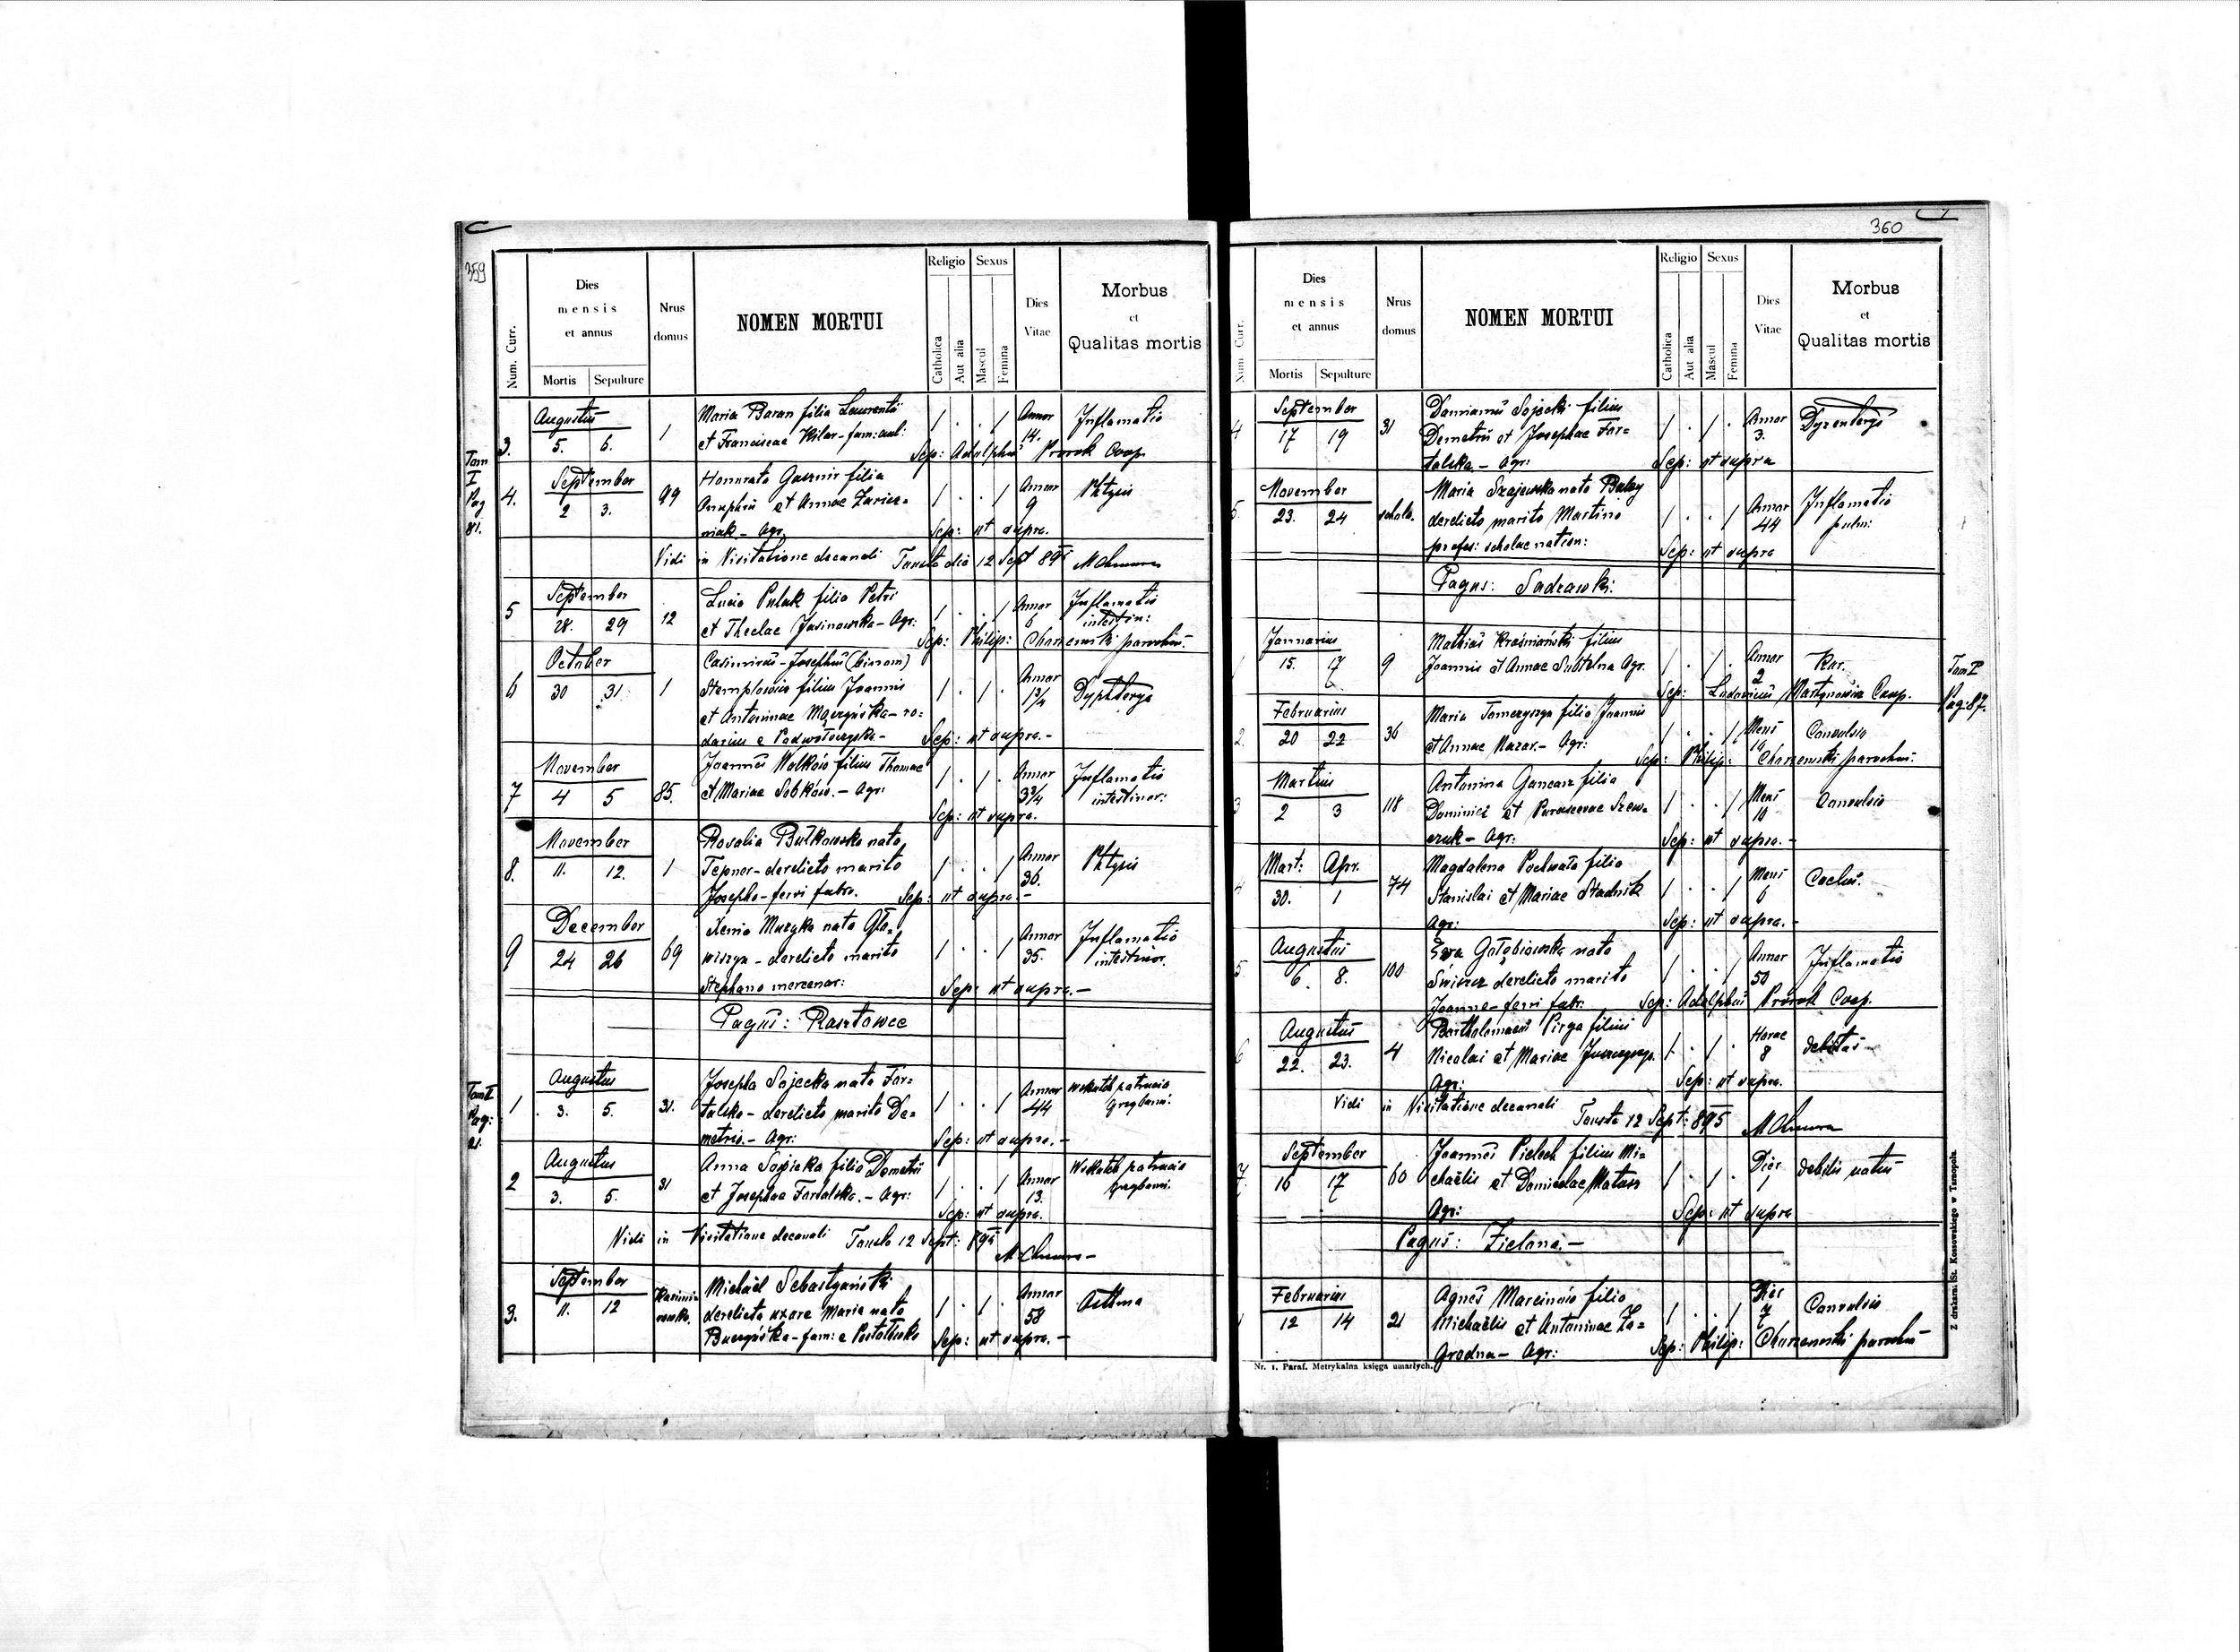 359
Num. Curr.
Dies
mensis
et annus
Mortis
Sepulture
Nrus
domus
NOMEN MORTUI
Religio
Catholica
Aut alia
Sexus
Mascul
Femina
Dies
Vitae
Morbus
et
Qualitas mortis
Tom
I
Pag
81.
3.
Augustus
5. 6.
1
Maria Baran filia Laurentii
et Franciscae Kilar - fam: aul:
/ . . /
Annor
14.
Inflamatio
Sep: Adolphus Prorok Coop.
4.
September
2 3.
99
Honorata filia
Onuphrii et Annae
niak - Agr.
/ . . /
Annor
9
Phtysis
Sep: ut supra.
Vidi in Visitatione decanali Tousto die 12 Sept 895
5
September
28. 29
12
Lucia Puluk filia Petri
et Theclae Jasinowska - Agr:
/ . . /
Annor
6
Inflamatio
intestin:
Sep: Philip: Charzewski parochus.
6
October
30 31
1
Casimirus - Josephus (binom)
Stemplowicz filius Joannis
et Antoninae - ro:
darius e Podwołoczyska -
/ . / .
Annor
1 3/4
Dyphterya
Sep: ut supra. -
7
November
4 5
85.
Joannes Wołków filius Thomae
et Mariae Sobków. - Agr:
/ . / .
Annor
3 3/4
Inflamatio
intestinor:
Sep: ut supra.
8.
November
11. 12.
1
Rosalia Bułkowska nata
Tepner - derelicto marito
Josepho - ferri fabro.
/ . . /
Annor
36.
Phtysis
Sep: ut supra. -
9
December
24 26
69
Xenia Muzyka nata Gło=
wiszyn - derelicto marito
Stephano mercenar:
/ . . /
Annor
35.
Inflamatio
intestinor.
Sep: ut supra. -
Pagus: Rasztowce
Tom I
Pag:
21.
1
Augustus
3. 5.
31.
Josepha Sojecka nata Far=
talska - derelicto marito De=
metrio. - Agr:
/ . . /
Annor
44
Wskutek zatrucia
grzybami.
Sep: ut supra. -
2
Augustus
3. 5.
31
Anna Sojecka filia Demetrii
et Josephae Fartalska. - Agr:
/ . . /
Annor
13.
Wskutek zatrucia
grzybami.
Sep: ut supra.
Vidi in Visitatione decanali Tousto 12 Sept: 895
3.
September
11. 12
Michaël Sebastyański
derelicta uxore Maria nata
Buczyńska - fam: e
/ . / .
Annor
58
Asthma
Sep: ut supra. -
360
Num Curr.
Dies
mensis
et annus
Mortis
Sepulture
Nrus
domus
NOMEN MORTUI
Religio
Catholica
Aut alia
Sexus
Mascul
Femina
Dies
Vitae
Morbus
et
Qualitas mortis
4
September
17 19
31
Damianus Sojecki filius
Demetrii et Josephae Far=
talska. - Agr:
/ . / .
Annor
3.
Dyzenterys
Sep: ut supra
5.
November
23. 24
schola.
Maria Szajewska nata
derelicto marito Martino
profes: scholae nation:
/ . . /
Annor
44
Inflamatio
pulm:
Sep: ut supra
Pagus: Sadzawki.
Tom I
Pag: 87.
1
Januarius
15. 17
9
Mathias Kraśniański filius
Joannis et Annae Subtelna Agr.
/ . / .
Annor
2
Kor.
Sep: Ludovicus Martynowicz Coop.
2
Februarius
20 22
36
Maria Tomczyszyn filia Joannis
et Annae Nazar. - Agr:
/ . . /
Mens
Convulsio
Sep: Philip: Charzewski parochus.
3
Martius
2 3
118
Antonina Gancarz filia
Dominici et Parascevae Szew=
czuk - Agr:
/ . . /
Mens
10
Convulsio
Sep: ut supra. -
4
Mart: Apr.
30. 1
74
Magdalena Pochwała filia
Stanislai et Mariae Stadnik
Agr:
/ . . /
Mens
6
Sep: ut supra. -
5
Augustus
6. 8.
100
Eva Gołębiowska nata
derelicto marito
Joanne - ferri fabr.
/ . . /
Annor
50
Inflamatio
Sep: Adolphus Prorok Coop.
6
Augustus
22. 23.
4
Bartholomaeus Pirga filius
Nicolai et Mariae
Agr:
/ . / .
Horae
8
debilitas
Sep: ut supra.
Vidi in Visitatione decanali
Tousto 12 Sept: 895
7.
September
16 17
60
Joannes Pielech filius Mi=
chaëlis et Domicelae
Agr:
/ . / .
Dies
1
debilis natus
Sep: ut supra
Pagus: Zielona. -
1
Februarius
12 14
21
Agnes Marcinów filia
Michaëlis et Antoninae Za=
grodna - Agr:
/ . . /
Dies
7
Convulsio
Sep: Philip: Charzewski parochus
Nr. 1. Paraf. Metrykalna księga umarłych.
Z drukarni St. Kossowskiego w Tarnopolu.